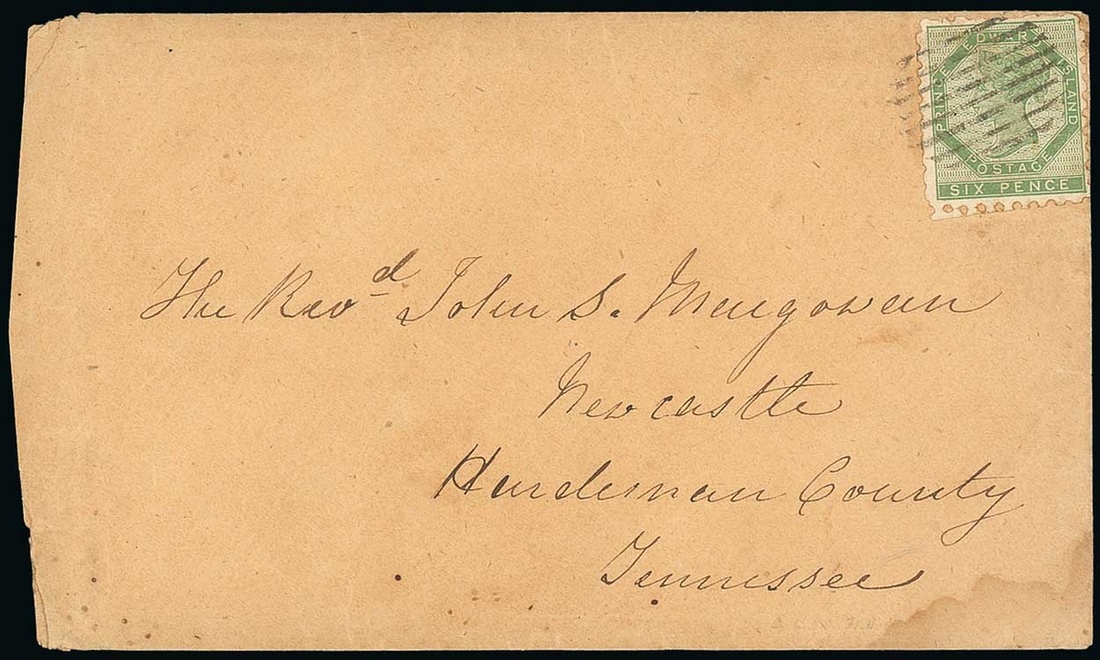 PRINCE EDWARD ISLAND
POSTAGE
SIX PENCE
The Revd John S. Mengowan
Newcastle
Hardeman County
Tennessee